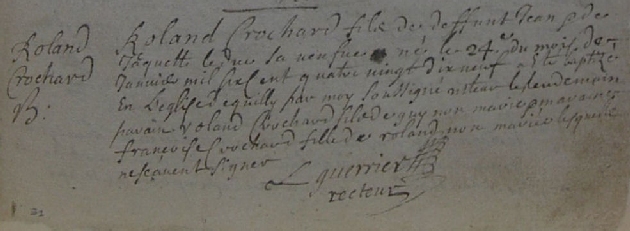 Roland
Crochard
B:
Roland Crochard fils de deffunt Jean & de
Jaquette leduc sa venfue né le 24e du mois de
Janvier mil six cent quatre vingt dix neuf a esté baptizé
En Leglise d'equilly par moy soussigné recteur le lendemain
parain Roland Crochard fils de guy non marié & maraine
francoise Crochard fille de roland non mariée lesquels
ne scavent signer
L guerrier
recteur